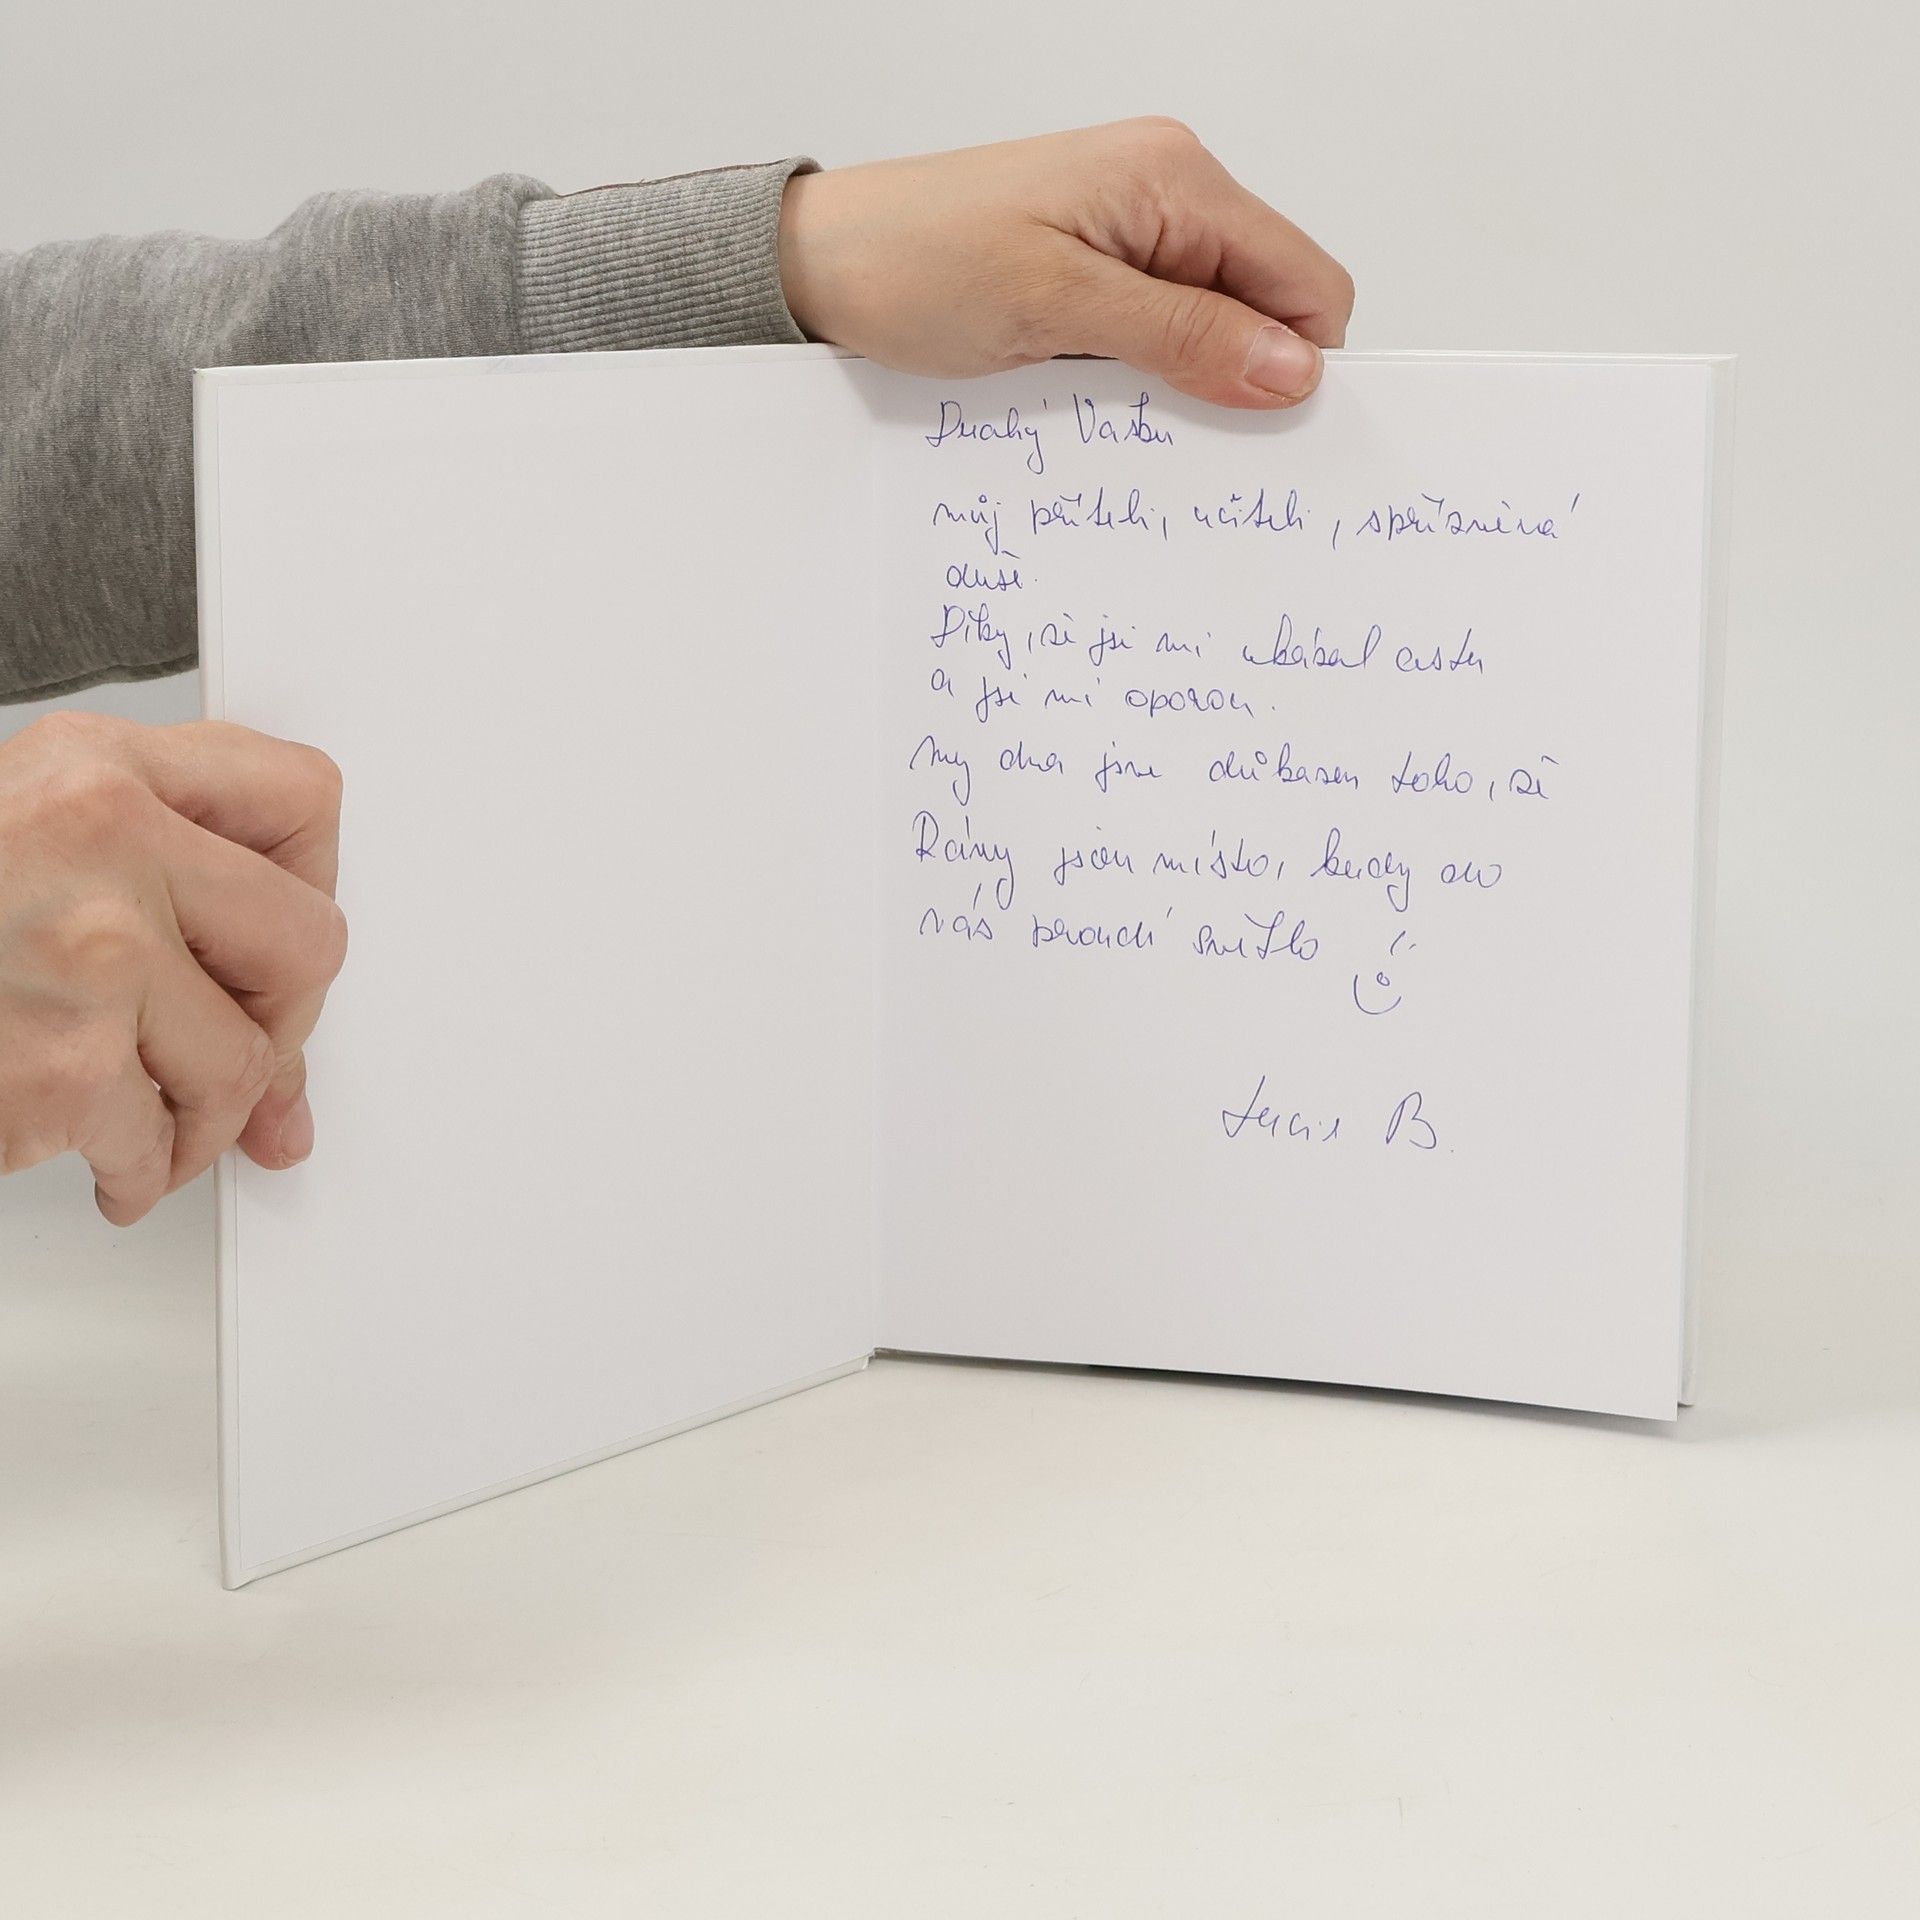 Drahý Vašku
můj příteli, učiteli, spřízněná
duše.
Díky, že jsi mi ukázal cestu
a jsi mi oporou.
My dva jsme důkazem toho, že
Rány jsou místo, kudy do
nás proudí světlo
Lucie B.